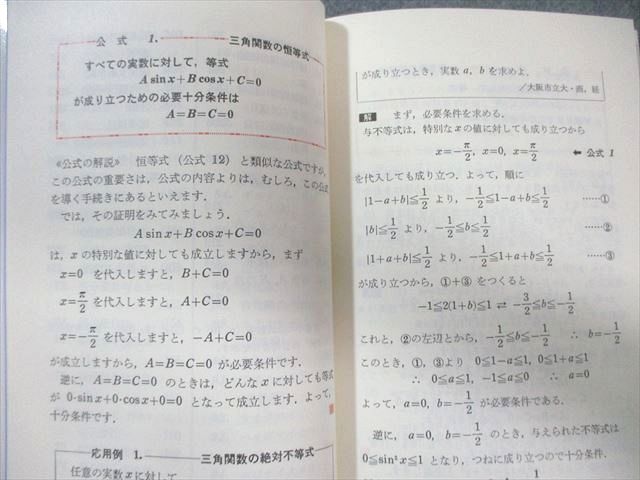 公式 1. 三角関数の恒等式
すべての実数に対して, 等式
A sin x+B cos x+C=0
が成り立つための必要十分条件は
A=B=C=0
《公式の解説》 恒等式 (公式 12) と類似な公式ですが,
この公式の重要さは, 公式の内容よりは, むしろ, この公式
を導く手続きにあるといえます.
では, その証明をみてみましょう.
A sin x+B cos x+C=0
は, x の特別な値に対しても成立しますから, まず
x=0 を代入しますと, B+C=0
x=π/2 を代入しますと, A+C=0
x=-π/2 を代入しますと, -A+C=0
が成立しますから, A=B=C=0 が必要条件です.
逆に, A=B=C=0 のときは, どんな x に対しても等式
が 0·sin x+0·cos x+0=0 となって成立します. よって,
十分条件です.
応用例 1. 三角関数の絶対不等式
任意の実数 x に対して
が成り立つとき, 実数 a, b を求めよ.
/大阪市立大・商, 経
解 まず, 必要条件を求める.
与不等式は, 特別な x の値に対しても成り立つから
x=-π/2, x=0, x=π/2 ← 公式 1
を代入しても成り立つ. よって, 順に
|1-a+b|≦1/2 より, -1/2≦1-a+b≦1/2 ……①
|b|≦1/2 より, -1/2≦b≦1/2 ……②
|1+a+b|≦1/2 より, -1/2≦1+a+b≦1/2 ……③
が成り立つから, ①+③ をつくると
-1≦2(1+b)≦1 ⇄ -3/2≦b≦-1/2
これと, ②の左辺とから, -1/2≦b≦-1/2 ∴ b=-1/2
このとき, ①, ③より 0≦1-a≦1, 0≦1+a≦1
∴ 0≦a≦1, -1≦a≦0 ∴ a=0
よって, a=0, b=-1/2 が必要条件である.
逆に, a=0, b=-1/2 のとき, 与えられた不等式は
0≦sin²x≦1 となり, つねに成り立つので十分条件.